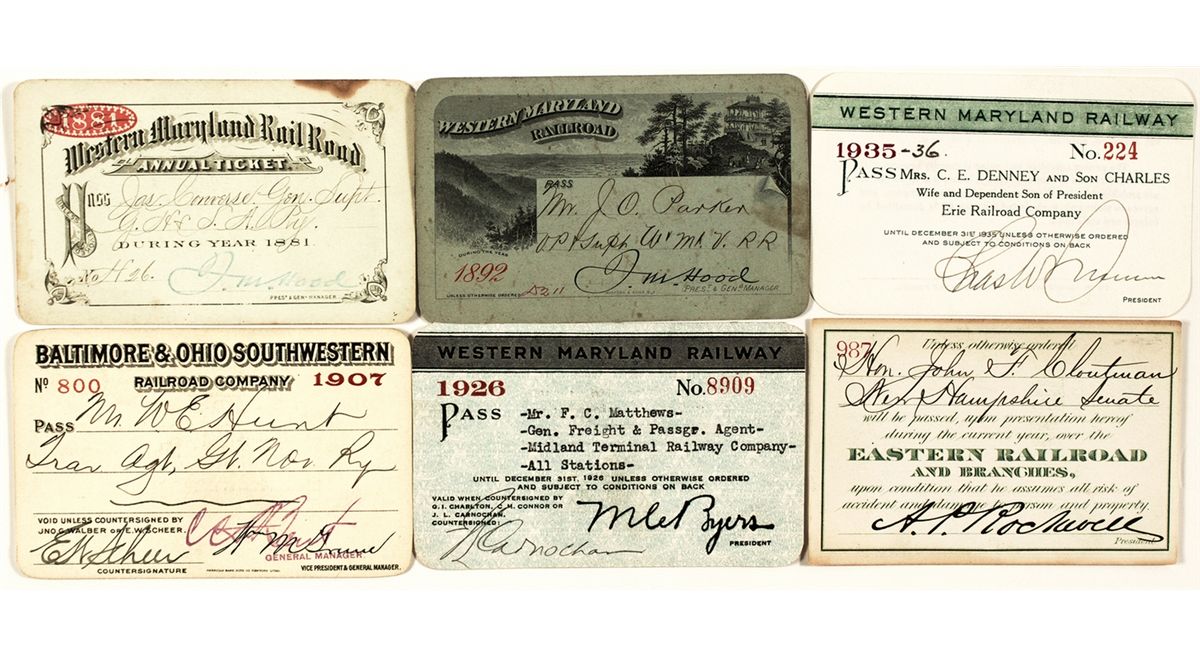 1881
Western Maryland Rail Road
ANNUAL TICKET.
Pass Jas. Converse Gen. Supt.
G. H. & S. A. Ry.
DURING YEAR 1881.
No H26. J. M. Hood
PREST & GENL MANAGER.
WESTERN MARYLAND
RAILROAD
PASS
Mr. J. O. Parker
DURING THE YEAR
1892
J. M. Hood
UNLESS OTHERWISE ORDERED
A211
PREST & GENL MANAGER
WESTERN MARYLAND RAILWAY
1935-36. No. 224
PASS MRS. C. E. DENNEY AND SON CHARLES
Wife and Dependent Son of President
Erie Railroad Company
UNTIL DECEMBER 31ST 1935 UNLESS OTHERWISE ORDERED
AND SUBJECT TO CONDITIONS ON BACK
PRESIDENT
BALTIMORE & OHIO SOUTHWESTERN
No 800 RAILROAD COMPANY 1907
PASS Mr. W E Hunt
Trav Agt, Gt. Nor. Ry
VOID UNLESS COUNTERSIGNED BY
JNO. G. WALBER or E. W. SCHEER.
E W Scheer
GENERAL MANAGER
COUNTERSIGNATURE
VICE PRESIDENT & GENERAL MANAGER.
WESTERN MARYLAND RAILWAY
1926 No. 8909
PASS -Mr. F. C. Matthews-
-Gen. Freight & Passgr. Agent-
-Midland Terminal Railway Company-
-All Stations-
UNTIL DECEMBER 31ST, 1926 UNLESS OTHERWISE ORDERED
AND SUBJECT TO CONDITIONS ON BACK
VALID WHEN COUNTERSIGNED BY
G. I. CHARLTON, C. M. CONNOR OR
J. L. CARNOCHAN.
COUNTERSIGNED:
M C Byers
PRESIDENT
J L Carnochan
987 Unless otherwise ordered
Hon. John F. Cloutman
New Hampshire Senate
will be passed, upon presentation hereof
during the current year, over the
EASTERN RAILROAD
AND BRANCHES,
upon condition that he assumes all risk of
accident and damage to person and property.
A. P. Rockwell
President